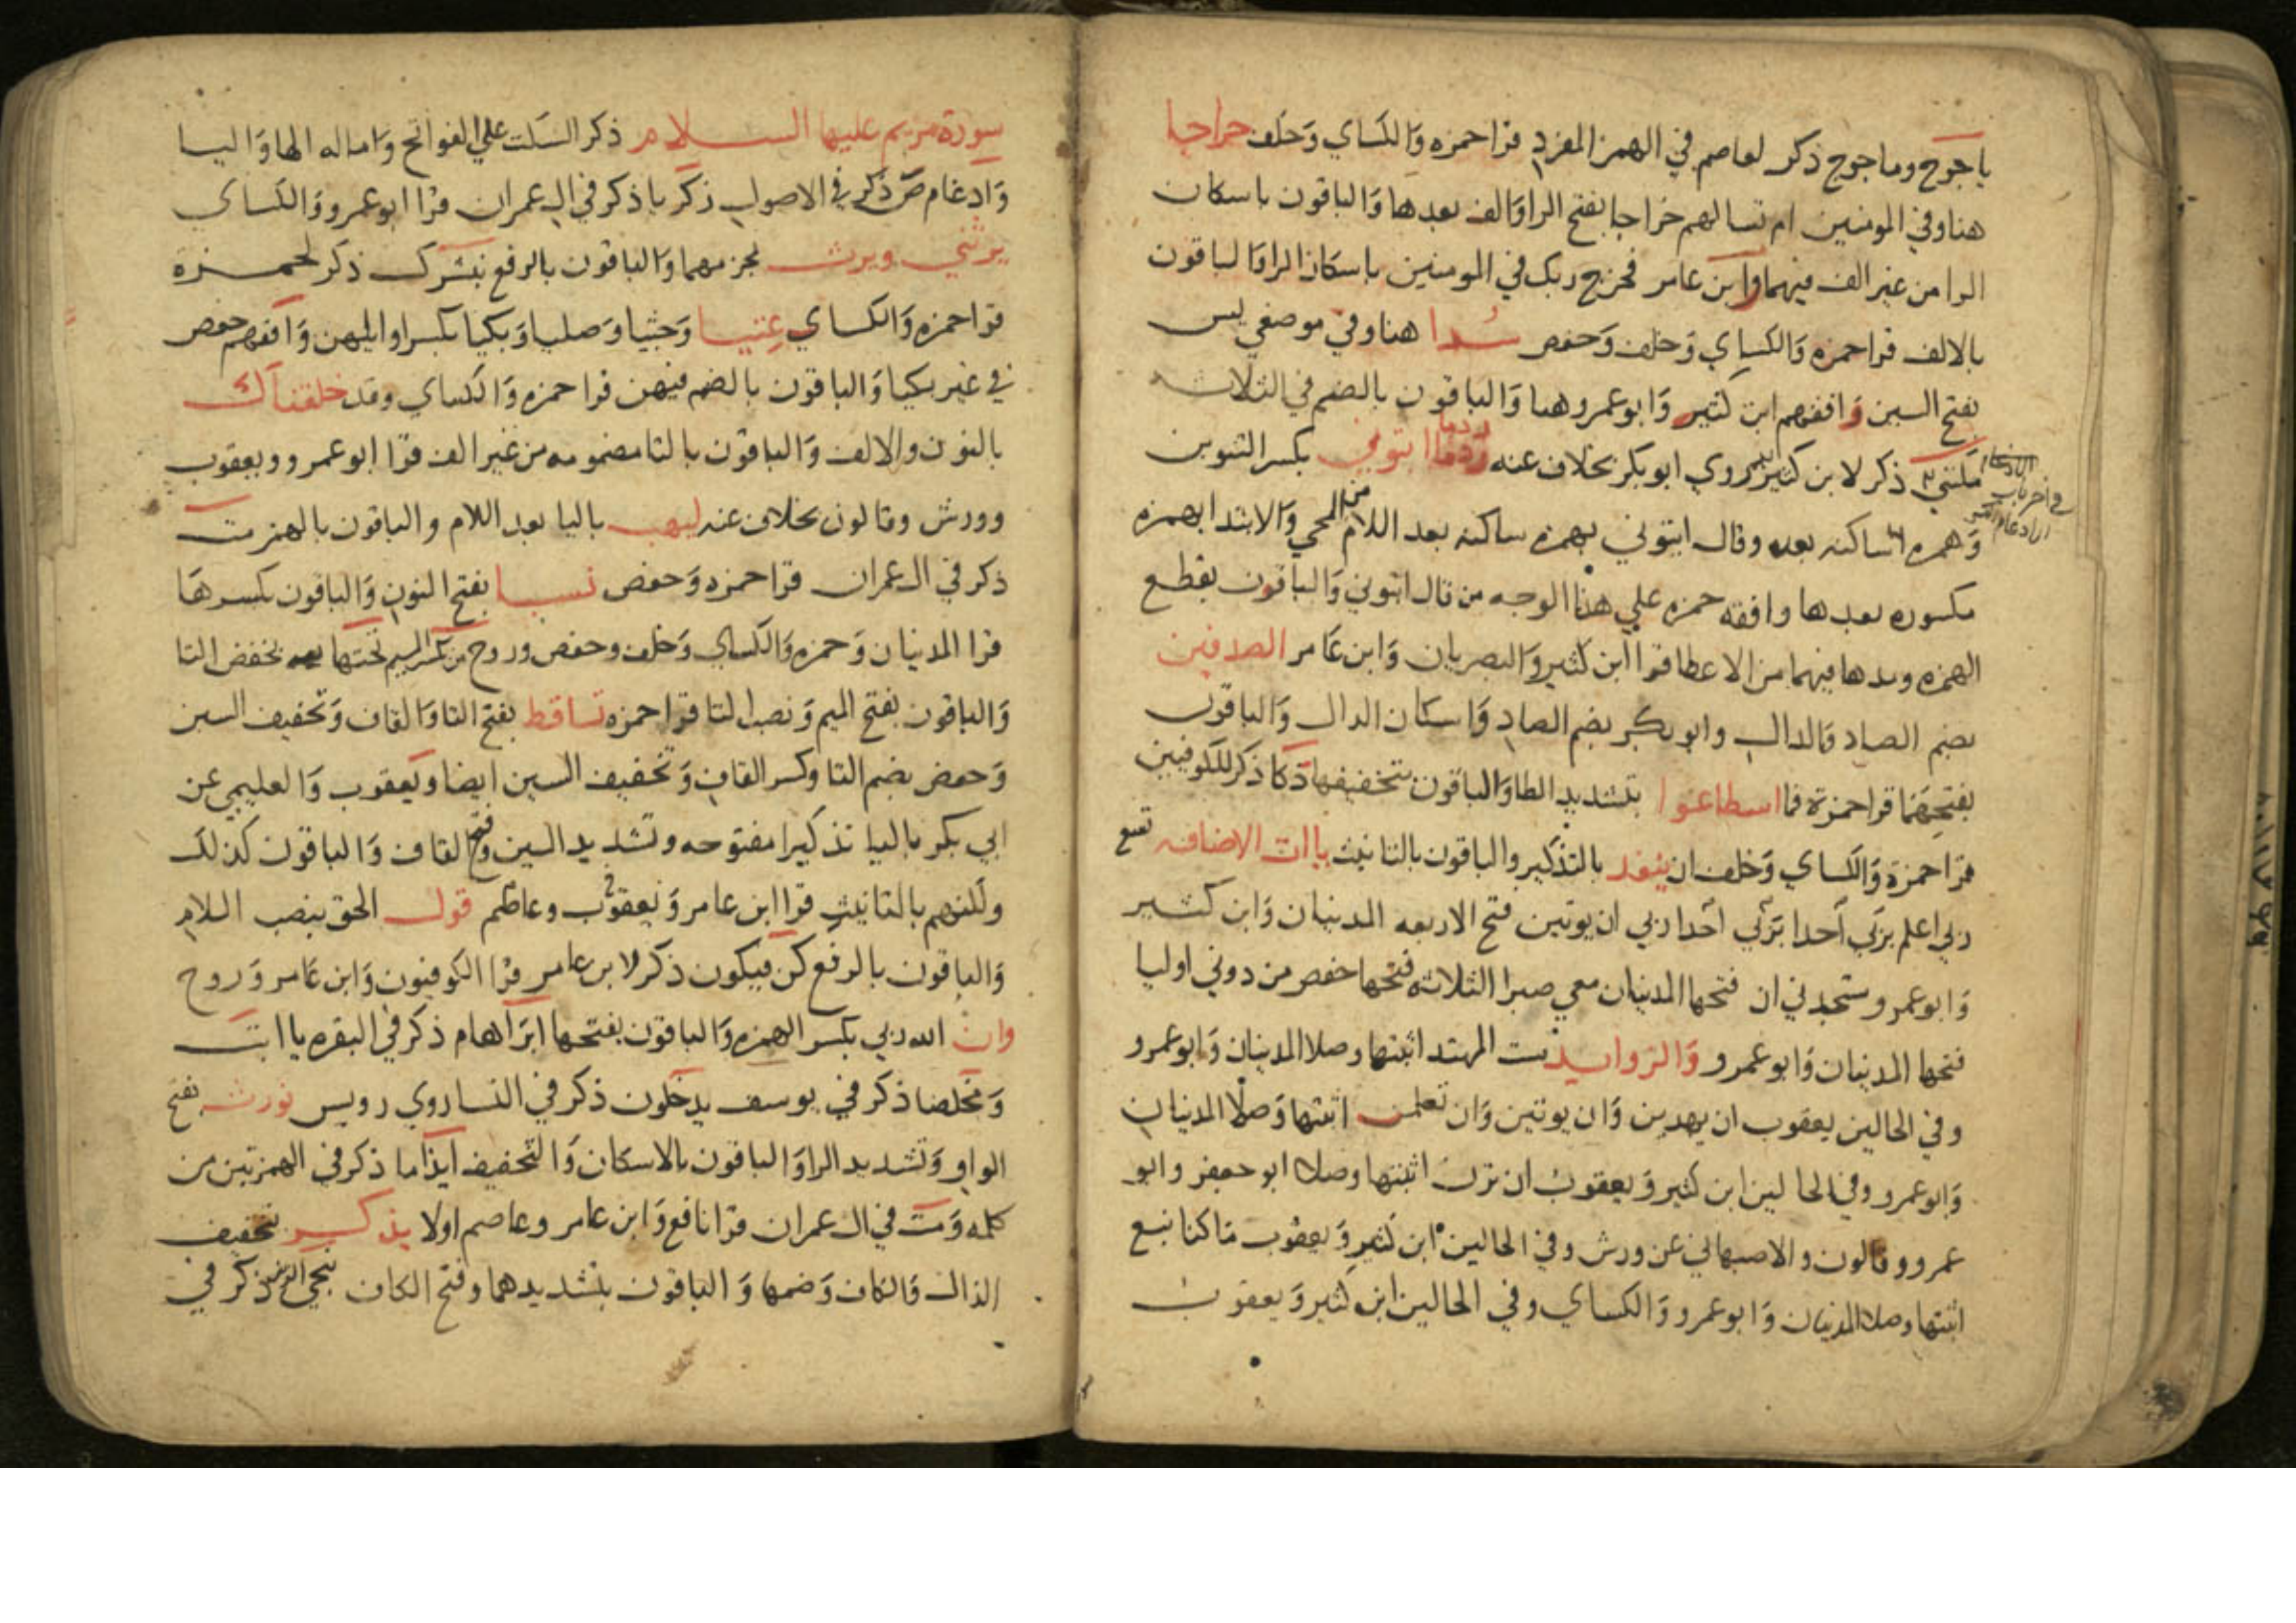 ياجوج وماجوج ذكر لعاصم في الهمز المفرد قرا حمزه والكساي وخلف خراجا
هنا وفي المومنين ام تسالهم خراجا بفتح الرا والف بعدها والباقون باسكان
الرا من غير الف فيهما وابن عامر فخرج ربك في المومنين باسكان الرا والباقون
بالالف قرا حمزه والكساي وخلف وحفص سدا هنا وفي موضعي يس
بفتح السين وافقهم ابن كثير وابو عمرو هنا والباقون بالضم في الثلاثه
مكنني ذكر لابن كثير روي ابو بكر بخلاف عنه ردما ايتوني بكسر التنوين
في اخر باب
الادغام الكبير
وهمزه ساكنه بعده وقال ايتوني بهمزه ساكنه بعد اللام من المجي والابتدا بهمزه
مكسوره بعدها وافقه حمزه علي هذا الوجه من قال اتوني والباقون بقطع
الهمزه ومدها فيهما من الاعطا قرا ابن كثير والبصريان وابن عامر الصدفين
بضم الصاد والدال وابو بكر بضم الصاد واسكان الدال والباقون
بفتحهما قرا حمزة فما اسطاعوا بتشديد الطا والباقون بتخفيفها دكا ذكر للكوفيين
قرا حمزة والكساي وخلف ان ينفد بالتذكير والباقون بالتانيث ياات الاضافه تسع
ربي اعلم بربي احدا بربي احدا ربي ان يوتين فتح الاربعه المدنيان وابن كثير
وابو عمرو ستجدني ان فتحها المدنيان معي صبرا الثلاثه فتحها حفص من دوني اوليا
فتحها المدنيان وابو عمرو والزوايد ست المهتد اثبتها وصلا المدنيان وابو عمرو
وفي الحالين يعقوب ان يهدين وان يوتين وان تعلمن اثبتها وصلا المدنيان
وابو عمرو وفي الحالين ابن كثير ويعقوب ان ترن اثبتها وصلا ابو جعفر وابو
عمرو وقالون والاصبهاني عن ورش وفي الحالين ابن كثير ويعقوب ما كنا نبغ
اثبتها وصلا المدنيان وابو عمرو والكساي وفي الحالين ابن كثير ويعقوب
سورة مريم عليها السلام ذكر السكت علي الفواتح واماله الها واليا
وادغام ص ذكر في الاصول زكريا ذكر في ال عمران قرا ابو عمرو والكساي
يرثني ويرث بجزمهما والباقون بالرفع نبشرك ذكر لحمزة
قرا حمزه والكساي عتيا وجثيا وصليا وبكيا بكسر اوايلهن وافقهم حفص
في غير بكيا والباقون بالضم فيهن قرا حمزه والكساي وقد خلقناك
بالنون والالف والباقون بالتا مضمومه من غير الف قرا ابو عمرو ويعقوب
وورش وقالون بخلاف عنه ليهب باليا بعد اللام والباقون بالهمز مت
ذكر في ال عمران قرا حمزه وحفص نسيا بفتح النون والباقون بكسرها
قرا المدنيان وحمزه والكساي وخلف وحفص وروح من بكسر الميم تحتها بخفض التا
والباقون بفتح الميم ونصب التا قرا حمزه تساقط بفتح التا والقاف وتخفيف السين
وحفص بضم التا وكسر القاف وتخفيف السين ايضا ويعقوب والعليمي عن
ابي بكر باليا تذكيرا مفتوحه وتشديد السين وفتح القاف والباقون كذلك
ولكنهم بالتانيث قرا ابن عامر ويعقوب وعاصم قول الحق بنصب اللام
والباقون بالرفع كن فيكون ذكر لابن عامر قرا الكوفيون وابن عامر وروح
وان الله ربي بكسر الهمزه والباقون بفتحها ابراهام ذكر في البقره يا ابت
ومخلصا ذكر في يوسف يدخلون ذكر في النسا روي رويس نورث بفتح
الواو وتشديد الرا والباقون بالاسكان والتخفيف ايذا ما ذكر في الهمزتين من
كلمه ومت في ال عمران قرا نافع وابن عامر وعاصم اولا يذكر بتخفيف
الذال والكاف وضمها والباقون بتشديدهما وفتح الكاف ننجي ذكر في